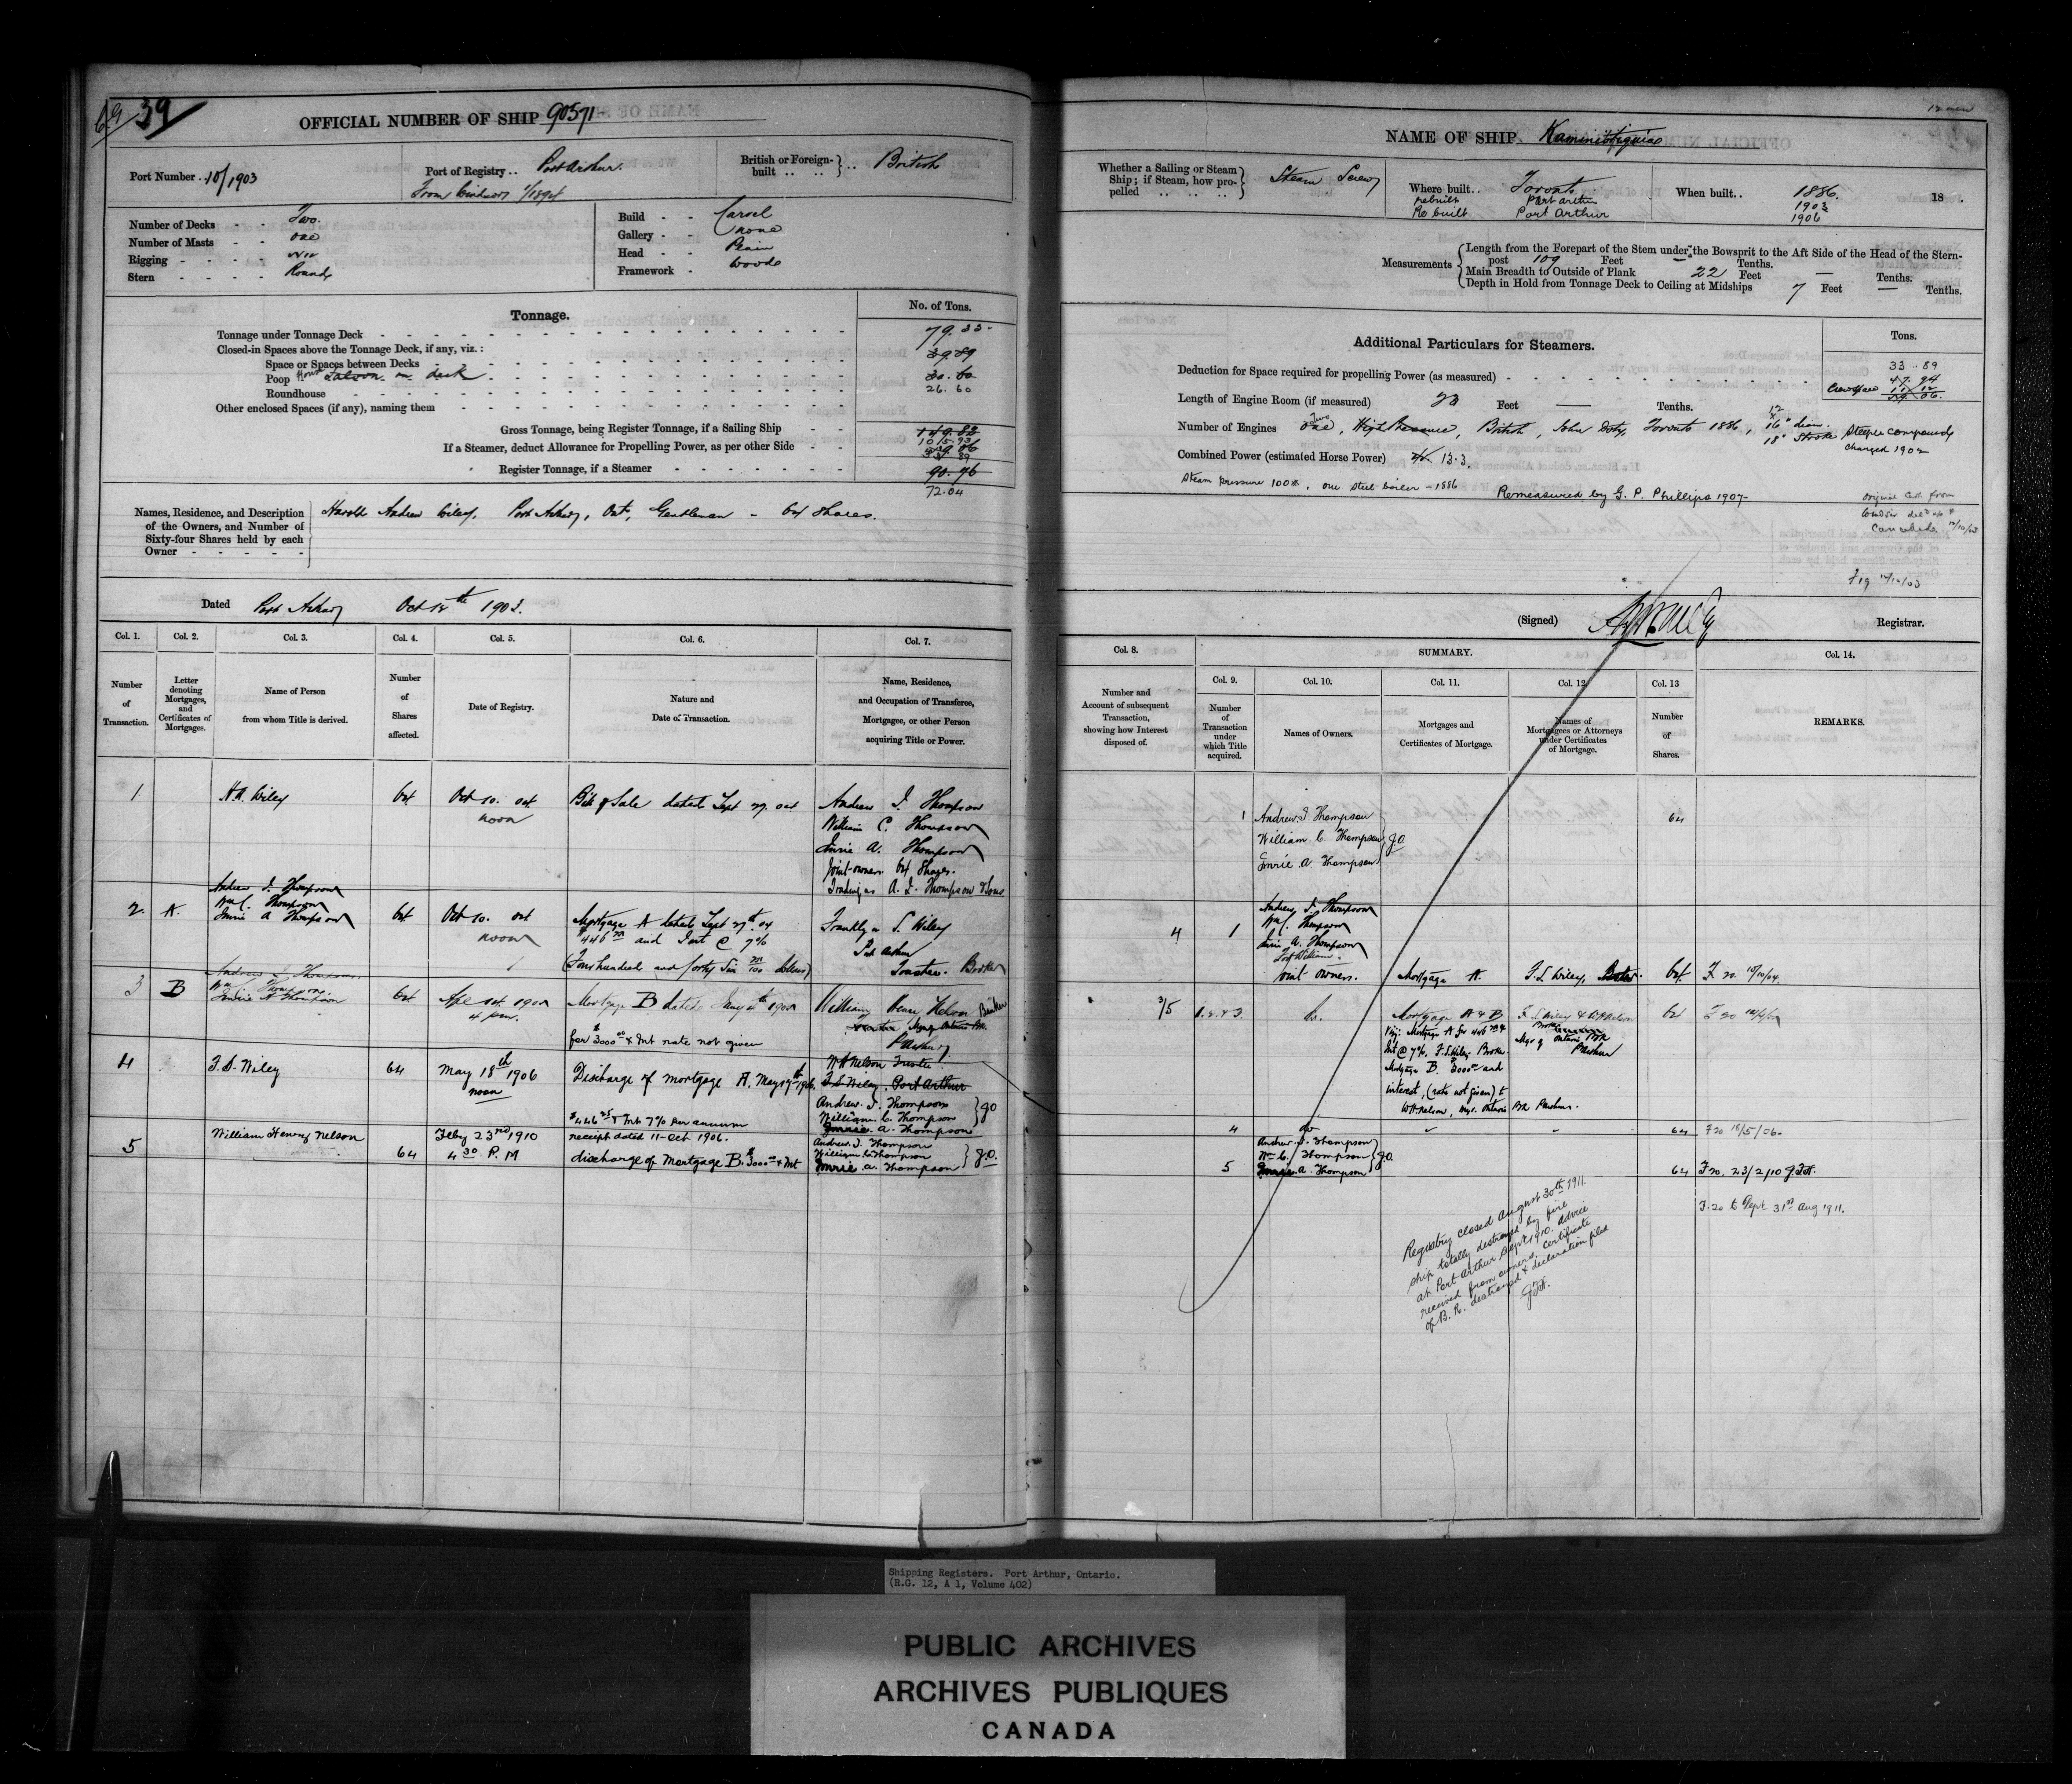 69 39
OFFICIAL NUMBER OF SHIP 90571
Port Number . 10/1903
Port of Registry . . Port Arthur.
From Windsor 1/1894
British or Foreign-built .. .. } .. British
Number of Decks - - Two.
Number of Masts - - one
Rigging - - - -
Stern - - - - Round
Build - - Carvel
Gallery - - none
Head - - Plain
Framework - Wood
Tonnage.
No. of Tons.
Tonnage under Tonnage Deck 79.33
Closed-in Spaces above the Tonnage Deck, if any, viz. :
Space or Spaces between Decks 39.89
Poop House Saloon on deck 30.60
Roundhouse 26.60
Other enclosed Spaces (if any), naming them
Gross Tonnage, being Register Tonnage, if a Sailing Ship 149.82
105.93
If a Steamer, deduct Allowance for Propelling Power, as per other Side 59.06
33.89
Register Tonnage, if a Steamer 90.76
72.04
Names, Residence, and Description of the Owners, and Number of Sixty-four Shares held by each Owner - - - - -
Harold Andrew Wiley, Port Arthur, Ont, Gentleman - 64 Shares.
Dated Port Arthur Oct 12th 1903.
Col. 1. Col. 2. Col. 3. Col. 4. Col. 5. Col. 6. Col. 7.
Number of Transaction.
Letter denoting Mortgages, and Certificates of Mortgages.
Name of Person from whom Title is derived.
Number of Shares affected.
Date of Registry.
Nature and Date of Transaction.
Name, Residence, and Occupation of Transferee, Mortgagee, or other Person acquiring Title or Power.
1 H.A. Wiley 64 Oct 10. 04 Bill of Sale dated Sept 27. 04 Andrew I. Thompson
noon William C. Thompson
Imrie A. Thompson
Joint owners 64 Shares.
Trading as A. I. Thompson & Sons
Andrew I. Thompson
Wm C. Thompson
2. A. Imrie A Thompson 64 Oct 10. 04 Mortgage A dated Sept 27th 04 Franklyn S. Wiley
noon $446 and Int @ 7% Port Arthur
(Four hundred and forty Six Dollars) Broker
Andrew I. Thompson
Wm C. Thompson
3 B Imrie A Thompson 64 4 pm. Mortgage B dated William Henry Nelson Banker
for $3000 & Int rate not given P Arthur
4 F. S. Wiley 64 May 18th 1906 Discharge of mortgage A. May 17th 1906. W H Nelson Trustee
noon F S Wiley. Port Arthur
Andrew. I. Thompson
$446 & Int 7% per annum William. C. Thompson } J O
receipt dated 11-Oct. 1906. Imrie. A. Thompson
5 William Henry Nelson 64 Feby 23rd 1910 Andrew. I. Thompson
4 30 P. M discharge of Mortgage B. $3000 & Int William C. Thompson } J.O.
Imrie A. Thompson
12 men
NAME OF SHIP. Kaministiquia
Whether a Sailing or Steam Ship; if Steam, how propelled .. .. .. } Steam Screw
Where built . . Toronto
rebuilt Port Arthur
Re built Port Arthur
When built . . 1886. 18 .
1903
1906
Measurements
Length from the Forepart of the Stem under the Bowsprit to the Aft Side of the Head of the Stern-
post 109 Feet — Tenths.
Main Breadth to Outside of Plank 22 Feet — Tenths.
Depth in Hold from Tonnage Deck to Ceiling at Midships 7 Feet — Tenths.
Additional Particulars for Steamers.
Tons.
33.89
Deduction for Space required for propelling Power (as measured) 47.94
Crew Space 11.12
59.06.
Length of Engine Room (if measured) 23 Feet — Tenths.
Number of Engines Two one, High Pressure, British, John Doty, Toronto 1886, 12 x 16" diam. 18" Stroke Steeple compound
changed 1902
Combined Power (estimated Horse Power) 13.3.
Steam pressure 100#, one steel boiler - 1886
Remeasured by G. P. Phillips 1907-
Original Cert. from
Windsor
Cancelled 12/10/03
Fig 12/10/03
(Signed) Registrar.
Col. 8. SUMMARY. Col. 14.
Col. 9. Col. 10. Col. 11. Col. 12. Col. 13
Number and Account of subsequent Transaction, showing how Interest disposed of.
Number of Transaction under which Title acquired.
Names of Owners.
Mortgages and Certificates of Mortgage.
Names of Mortgagees or Attorneys under Certificates of Mortgage.
Number of Shares.
REMARKS.
1 Andrew. I. Thompson 64
William. C. Thompson } J.O.
Imrie A. Thompson
Andrew I. Thompson
Wm C. Thompson
4 1 Imrie A. Thompson
Fort William.
Joint owners. Mortgage A. F. S. Wiley, Broker. 64 F 20 10/10/04.
3/5 1. 2. & 3. Do. Mortgage A & B F. S. Wiley & W H Nelson 64 F 20
Viz: Mortgage A for $446 & Broker
Int @ 7%. F. S. Wiley Broker Mgr of Ontario Bk
Mortgage B. $3000 and P Arthur
interest, (rate not given) to
W H Nelson, Mgr. Ontario Bk P Arthur.
4 do 64 F 20 18/5/06.
Andrew. I. Thompson
Wm C. Thompson } J.O.
5 Imrie A. Thompson 64 F 20. 23/2/10
F. 20 to Dept 31st Aug 1911.
Registry closed August 30th 1911.
ship totally destroyed by fire
at Port Arthur Sept 1910. advice
received from owners, certificate
of B. R. destroyed & declaration filed
Shipping Registers. Port Arthur, Ontario.
(R.G. 12, A 1, Volume 402)
PUBLIC ARCHIVES
ARCHIVES PUBLIQUES
CANADA